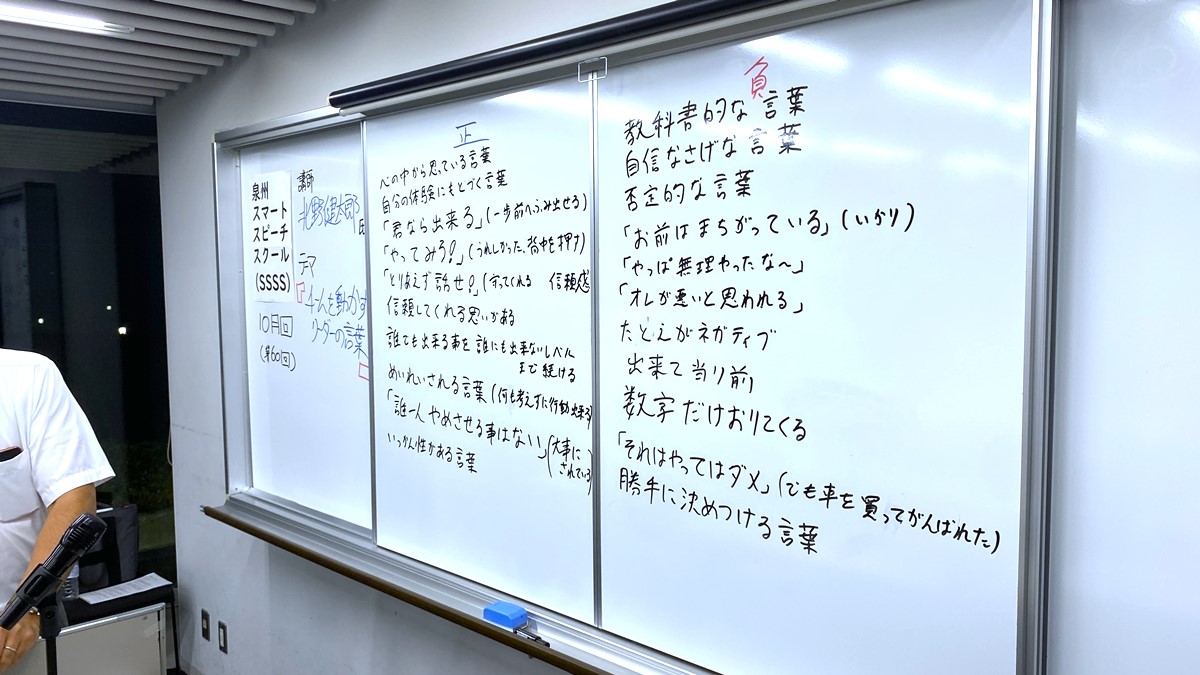 泉州
スマート
スピーチ
スクール
(SSSS)
10月回
(第60回)
講師
北野健太郎氏
テーマ
『チームを動かす
リーダーの言葉
』
正
心の中から思っている言葉
自分の体験にもとづく言葉
「君なら出来る」(一歩前へふみ出せる)
「やってみろ!」(うれしかった、背中を押す)
「とりあえず話せ!」(守ってくれる 信頼感
信頼してくれる思いがある
誰でも出来る事を誰にも出来ないレベル
まで続ける
めいれいされる言葉(何も考えずに行動出来る)
「誰一人やめさせる事はない」(大事に
されている)
いっかん性がある言葉
負
教科書的な言葉
自信なさげな言葉
否定的な言葉
「お前はまちがっている」(いかり)
「やっぱ無理やったな〜」
「オレが悪いと思われる」
たとえがネガティブ
出来て当り前
数字だけおりてくる
「それはやってはダメ」(でも車を買ってがんばれた)
勝手に決めつける言葉